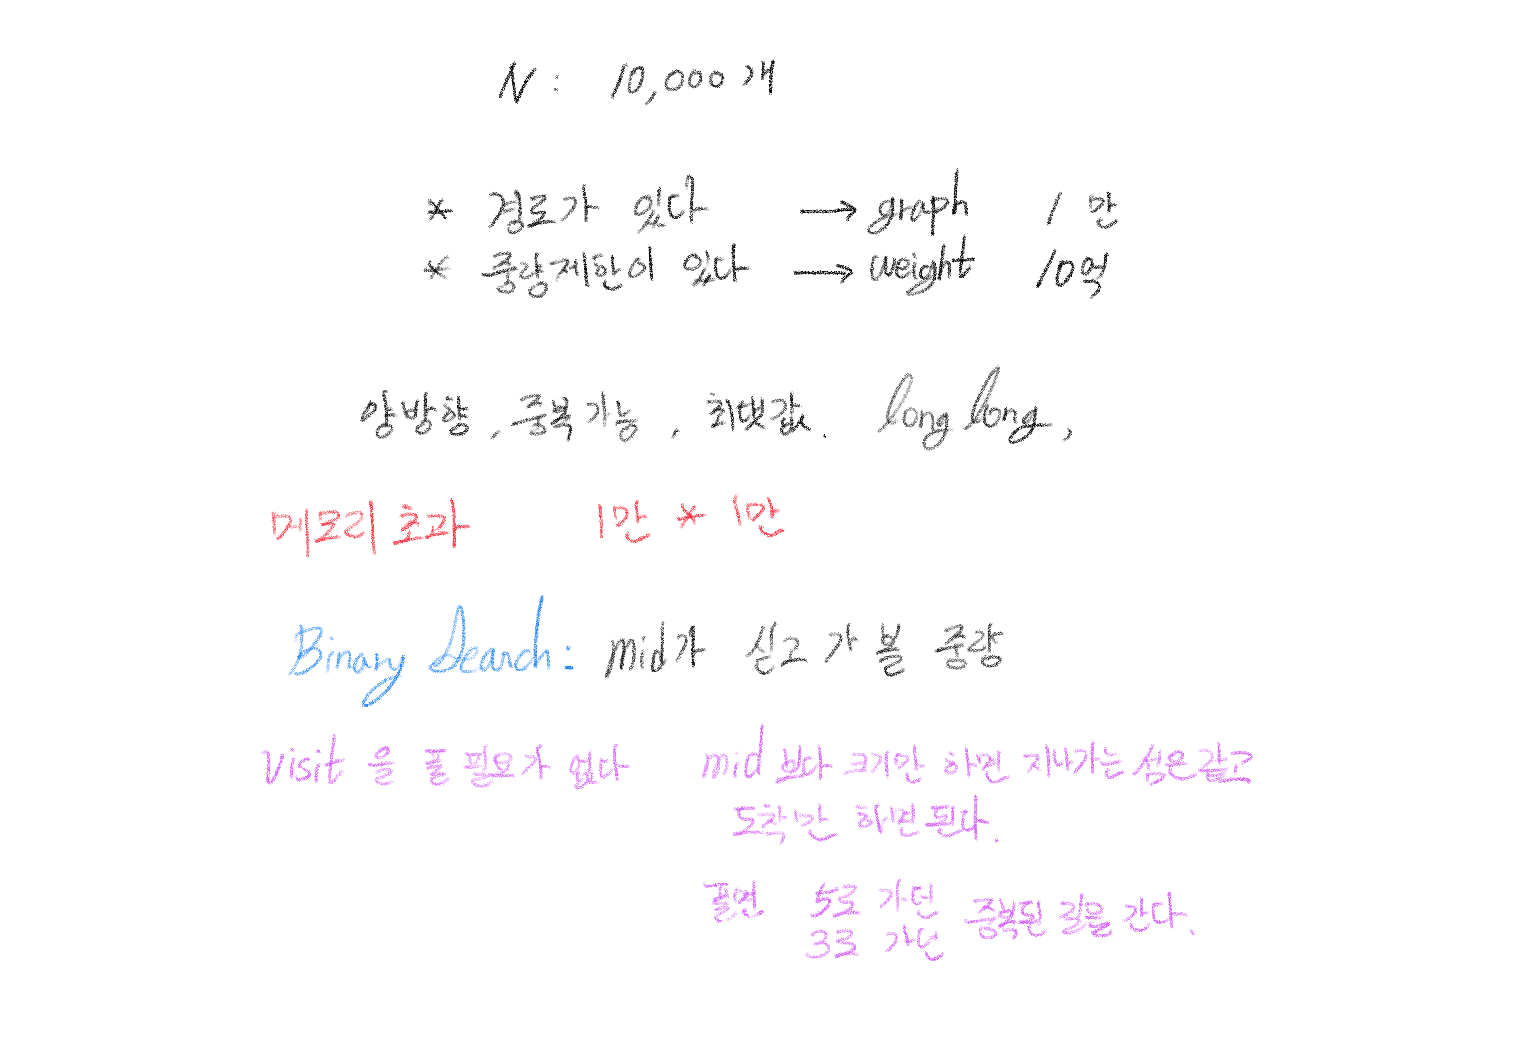 N : 10,000개
* 경로가 있다 → graph 1만
* 중량제한이 있다 → weight 10억
양방향, 중복가능, 최댓값. long long,
메모리 초과 1만 * 1만
Binary Search: mid가 싣고 가 볼 중량
visit 을 풀 필요가 없다 mid 보다 크기만 하면 지나가는 섬은 같고
도착만 하면 된다.
풀면 5로 가던 중복된 길을 간다.
3으로 가던